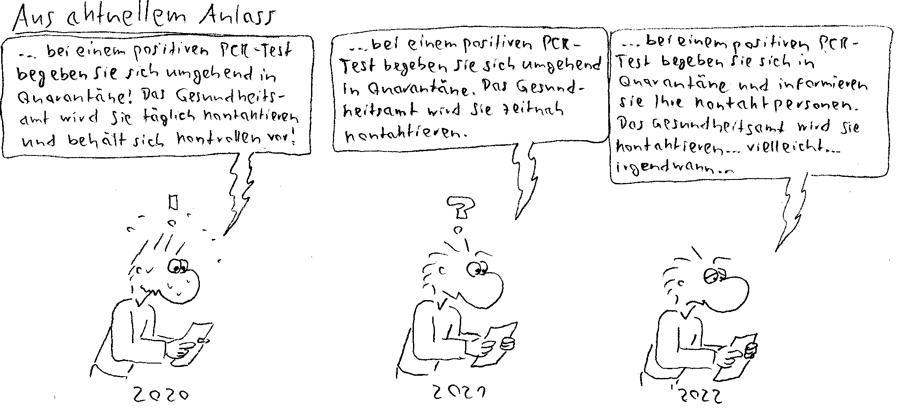 Aus aktuellem Anlass
... bei einem positiven PCR-Test
begeben Sie sich umgehend in
Quarantäne! Das Gesundheits-
amt wird Sie täglich kontaktieren
und behält sich Kontrollen vor!
... bei einem positiven PCR-
Test begeben Sie sich umgehend
in Quarantäne. Das Gesund-
heitsamt wird Sie zeitnah
kontaktieren.
... bei einem positiven PCR-
Test begeben Sie sich in
Quarantäne und informieren
sie Ihre Kontaktpersonen.
Das Gesundheitsamt wird Sie
kontaktieren... vielleicht...
irgendwann...
!
?
2020
2021
2022